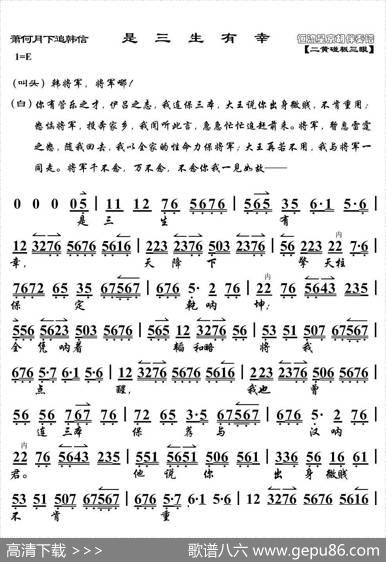 萧何月下追韩信
是三生有幸
1=E
【二黄碰板三眼】
(叫头) 韩将军，将军哪！
(白) 你有管乐之才，伊吕之志，我连保三本，大王说你出身微贱，不肯重用；
愁恼将军，投奔家乡，我闻听此言，急急忙忙追赶前来。将军，暂息雷霆
之怒，随我回去，我以全家的性命力保将军；大王再若不用，我与将军一
同走。将军千不念，万不念，不念你我一见如故——
0 0 0 05 | 11 12 76 5676 | 565 35 6·1 5·6 |
是 三 生 有
12 3276 5676 5616 | 223 2376 503 2376 | 56 223 内 22 7·6 |
幸， 天 降 下 擎 天 柱
7672 65 35 67567 | 676 5· 2 76 | 内 22 76 5643 235 |
保 定 乾 呐 坤；
556 5623 503 5676 | 565 12 3276 56 | 53 51 507 67567 |
全 凭 呐 着 韬 和 略 将 我
676 5·6 1·6 5·6 | 12 3276 5676 5616 | 223 2376 503 5676 |
点 醒， 我 也 曾
56 56 767 76 | 72 02 3·5 67567 | 676 5· 2 76 |
连 三 本 保 荐 与 汉 呐
内
22 76 5643 235 | 51 507 76 76 | 223 5 16 61 |
君。 他 说 你 出 身 微 贱
53 51 507 67567 | 676 5 6·1 5·6 | 12 3276 5676 5616 |
不 肯 重
高清下载 >>>
歌谱八六 www.gepu86.com